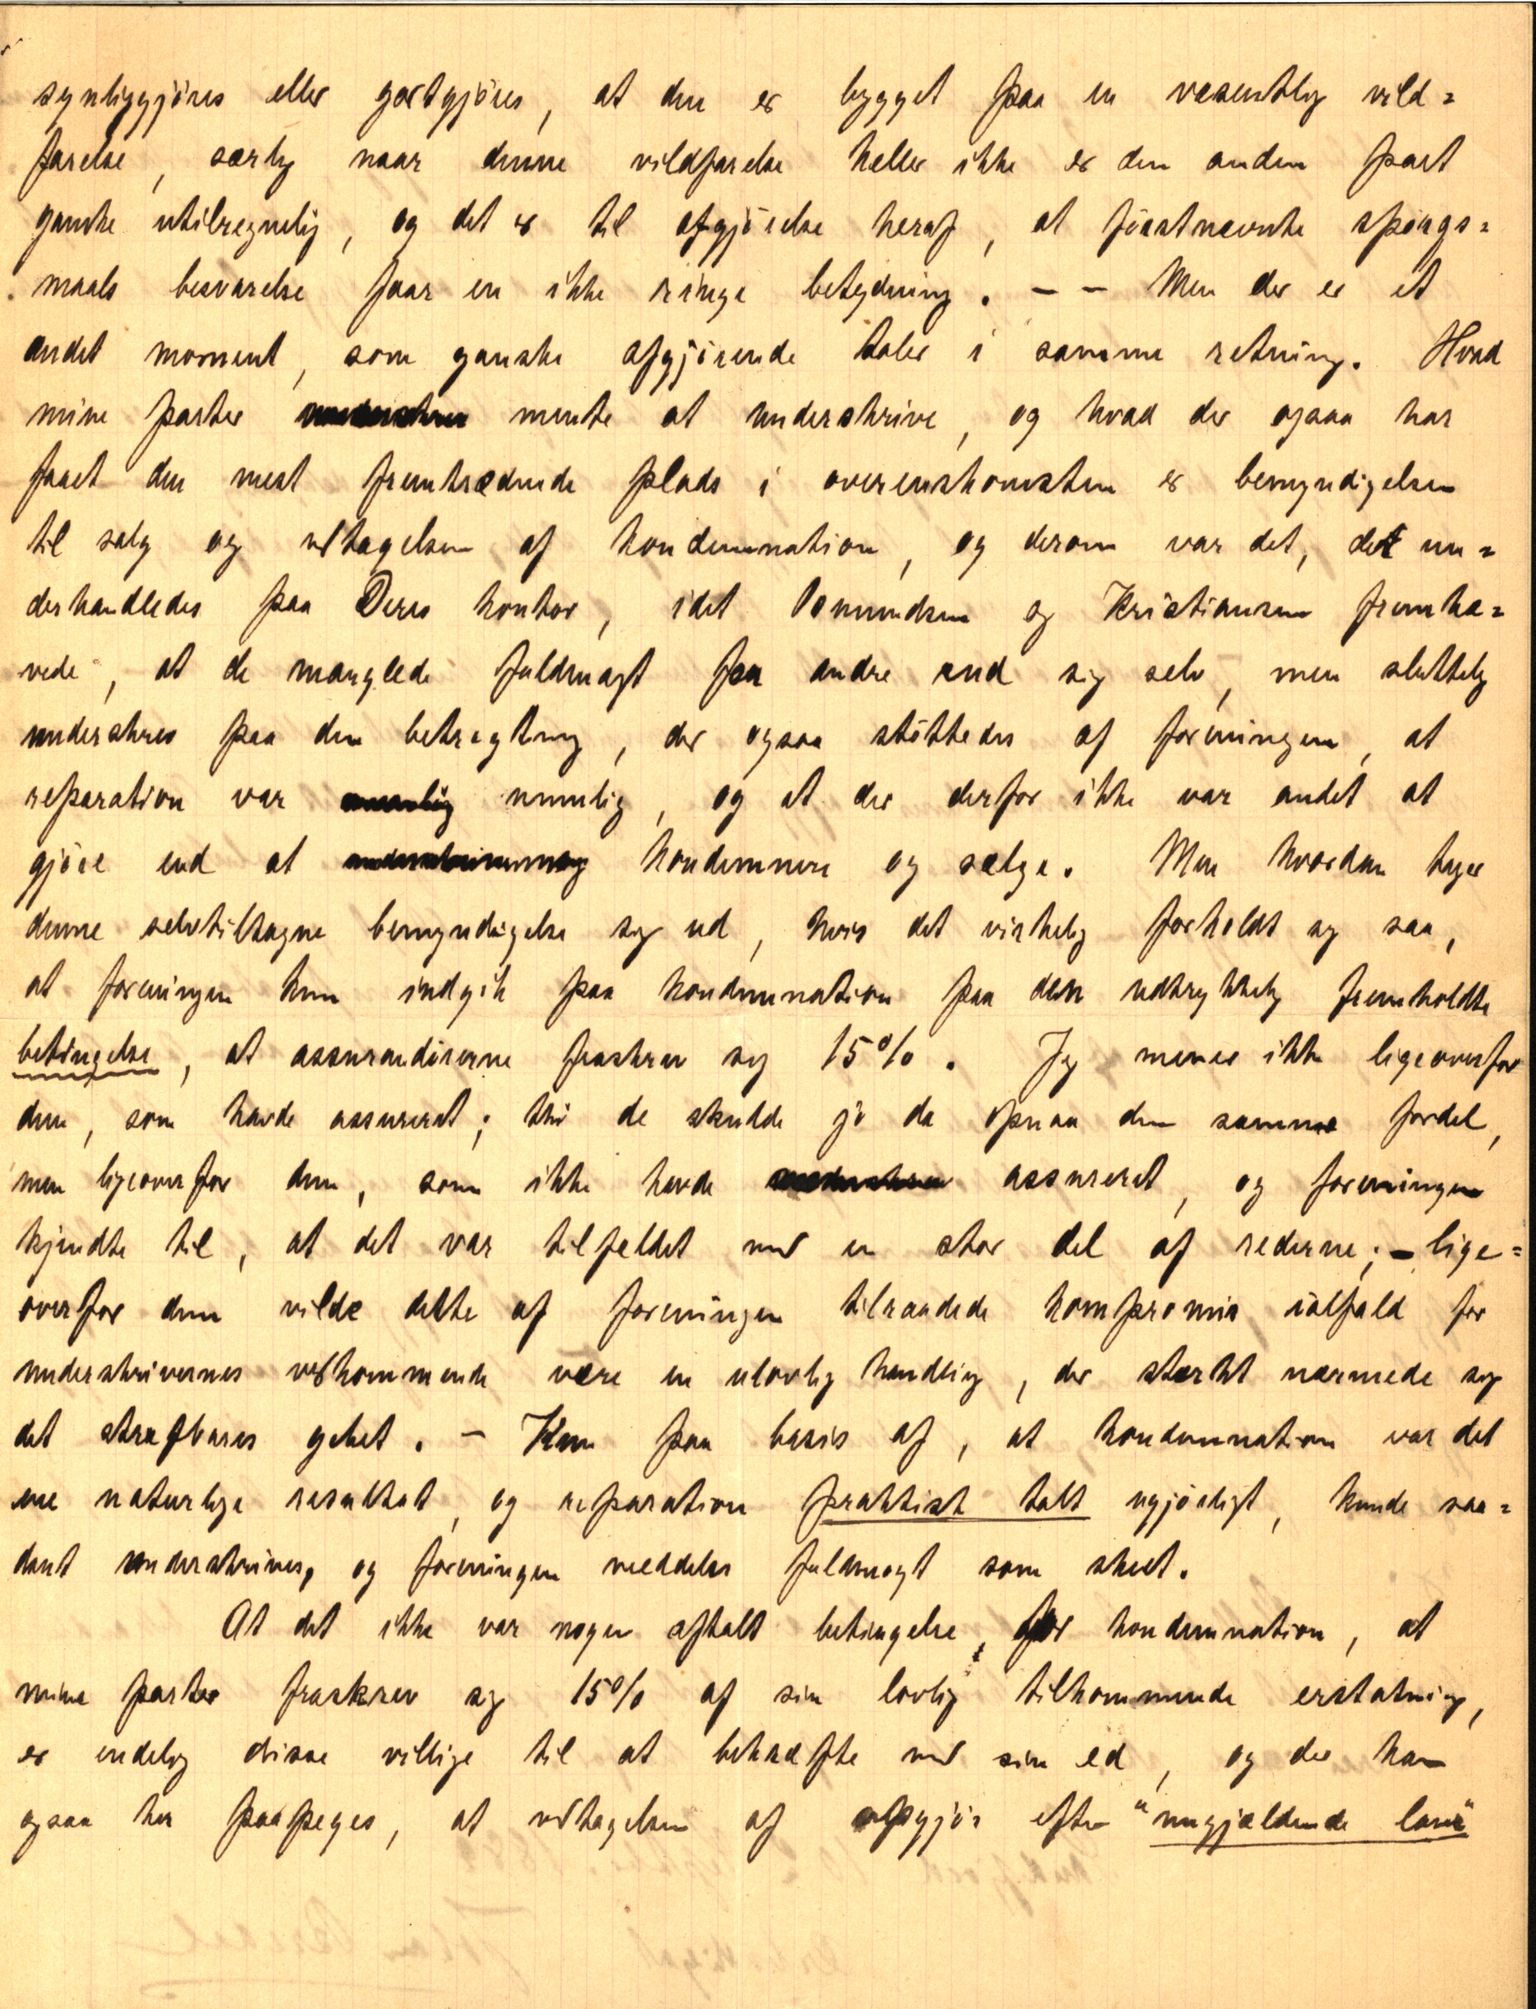 synliggjöres eller godtgjöres, at den er bygget paa en væsentlig vild=
farelse, særlig naar denne vildfarelse heller ikke er den anden part
ganske utilregnelig, og det er til afgjörelse heraf, at förstnævnte spörgs=
maals besvarelse faar en ikke ringe betydning. - - Men der er et
andet moment, som ganske afgjörende taler i samme retning. Hvad
mine parter mente at underskrive, og hvad der ogsaa har
faaet den mest fremtrædende plads i overenskomsten er bemyndigelsen
til salg og vedtagelsen af kondemnation, og derom var det, det un=
derhandledes paa Deres kontor, idet Osmundsen og Kristiansen fremhæ=
vede, at de manglede fuldmagt fra andre end sig selv, men sluttelig
underskrev paa den betragtning, der ogsaa stöttedes af foreningen, at
reparation var umulig, og at der derfor ikke var andet at
gjöre end at kondemnere og sælge. Men hvordan tager
denne selvtiltagne bemyndigelse sig ud, hvis det virkelig forholdt sig saa,
at foreningen kun indgik paa kondemnation paa den udtrykkelig fremholdte
betingelse, at assurandörerne fraskrev sig 15%. Jeg mener ikke ligeoverfor
dem, som havde assureret; thi de skulde jo da opnaa den samme fordel,
men ligeoverfor dem, som ikke havde assureret, og foreningen
kjendte til, at det var tilfeldet med en stor del af rederne; - lige=
overfor dem vilde dette af foreningen tilraadede kompromis ialfald for
underskrivernes vedkommende være en ulovlig handling, der stærkt nærmede sig
det strafbares gebet. - Kun paa basis af, at kondemnation var det
ene naturlige resultat, og reparation praktisk talt ugjörligt, kunde saa=
dant underskrives, og foreningen meddeles fuldmagt som skeet.
At det ikke var nogen aftalt betingelse for kondemnation, at
mine parter fraskrev sig 15% af sin lovlig tilkommende erstatning,
er endelig disse villige til at bekræfte med sin ed, og der kan
ogsaa her paapeges, at vedtagelsen af opgjör efter "nugjældende love"